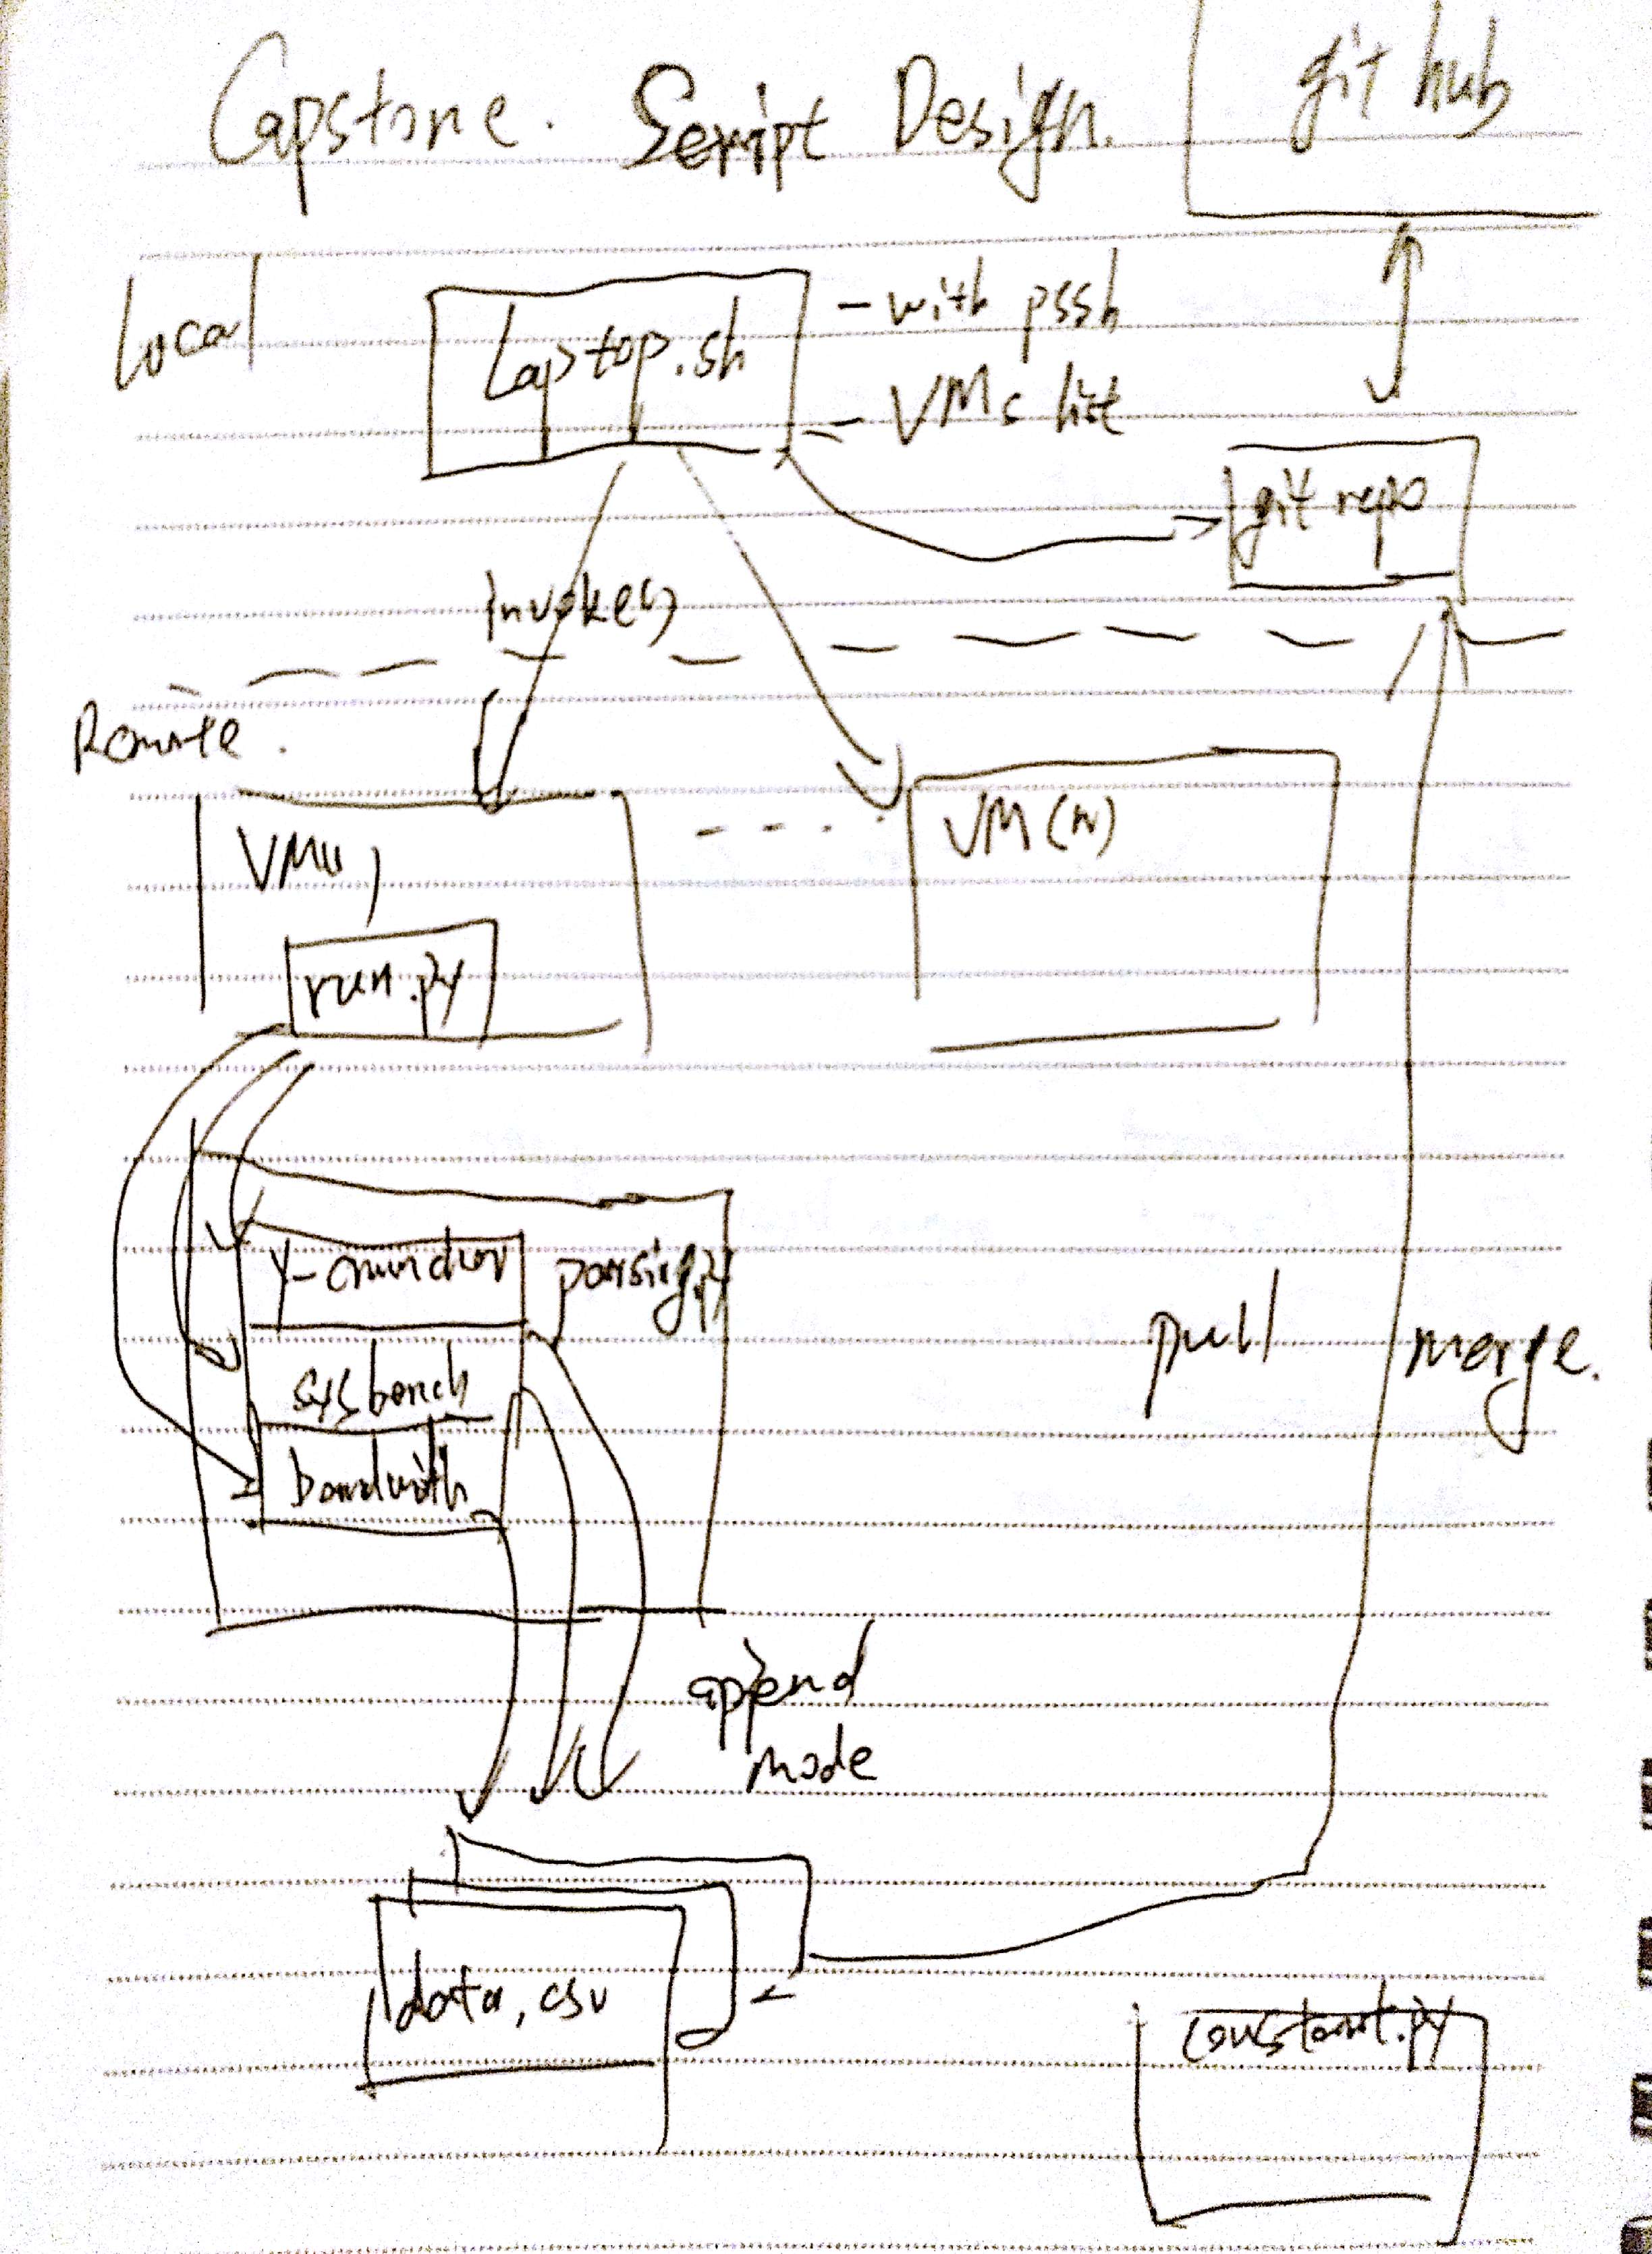 Capstone. Script Design.
git hub
Local
Laptop.sh
- with pssh
- VMs list
git repo
Invoke()
Remote.
VM(1)
----
VM(n)
run.py
y-cruncher
parsing.py
sysbench
bandwith
pull
merge.
append
mode
data.csv
constant.py